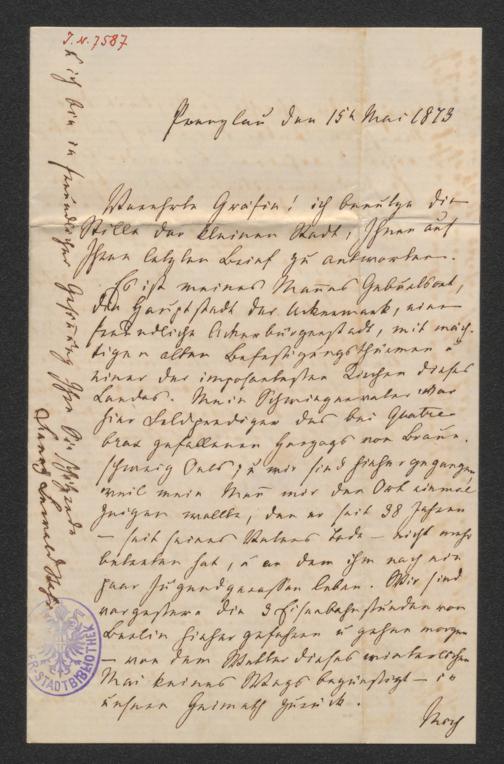 J. N. 7587
Prenzlau den 15t Mai 1873
Verehrte Gräfin! ich benutze die
Stille der kleinen Stadt, Ihnen auf
Ihren letzten Brief zu antworten.
Es ist meines Mannes Geburtsort,
die Hauptstadt der Uckermark, eine
freundliche Ackerbürgerstadt, mit mäch-
tigen alten Befestigungsthürmen u
einer der imposantesten Kirchen dieses
Landes. Mein Schwiegervater war
hier Feldprediger des bei Quatre-
bras gefallenen Herzogs von Braun-
schweig Oels; u wir sind hieher gegangen
weil mein Mann mir den Ort einmal
zeigen wollte, den er seit 38 Jahren
— seit seines Vaters Tode — nicht mehr
betreten hat, u an dem ihm noch ein
paar Jugendgenossen leben. Wir sind
vorgestern die 3 Eisenbahnstunden von
Berlin hieher gefahren u gehen morgen
— von dem Wetter dieses winterlichen
Mai keines Wegs begünstigt — in
unsere Heimath zurück.
Noch
ich bin in freundlicher Gesinnung Ihre Sie schätzende
Fanny Lewald Stahr
STADTBIBLIOTHEK